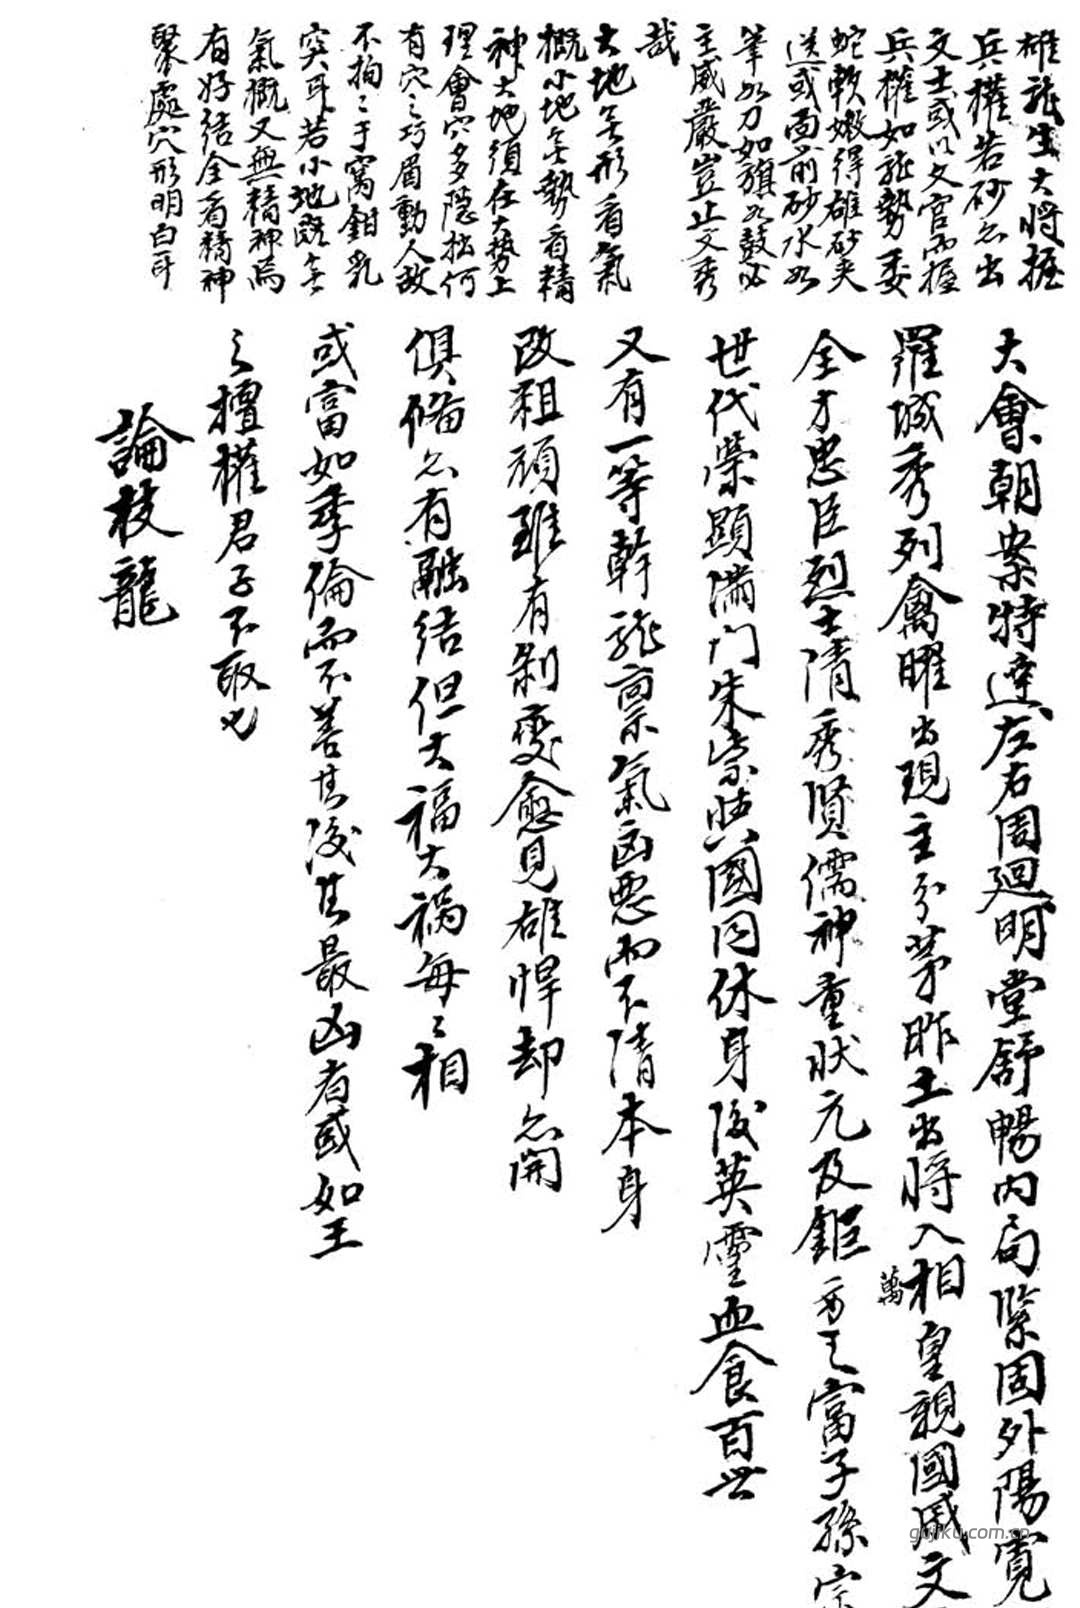 雄龍生大將握
兵權若砂亦出
文士或以文官而握
兵權如龍勢委
蛇軟嫩得雄砂夾
送或面前砂水如
筆如刀如旗如鼓必
主威嚴豈止文秀
哉
大地無形看氣
概小地無勢看精
神大地須在大勢上
理會穴多隱拙何
有穴之巧眉動人故
不拘〻于窩鉗乳
突耳若小地既無
氣概又無精神焉
有好結全看精神
聚處穴形明白耳
大會朝案特達左右周迴明堂舒暢內局緊固外陽寬
羅城秀列禽曜出現主分茅胙土出將入相皇親國戚文
萬
全才忠臣烈士清秀賢儒神童狀元及鉅富子孫宗
世代榮顯滿門朱紫與國同休身後英靈血食百世
又有一等幹龍稟氣凶惡而不清本身
改粗頑雖有剝變愈見雄悍却亦開
俱備亦有融結但大福大禍每〻相
或富如季倫而不善其後其最凶者或如王
之擅權君子不取也
論枝龍
gujiku.com.cn